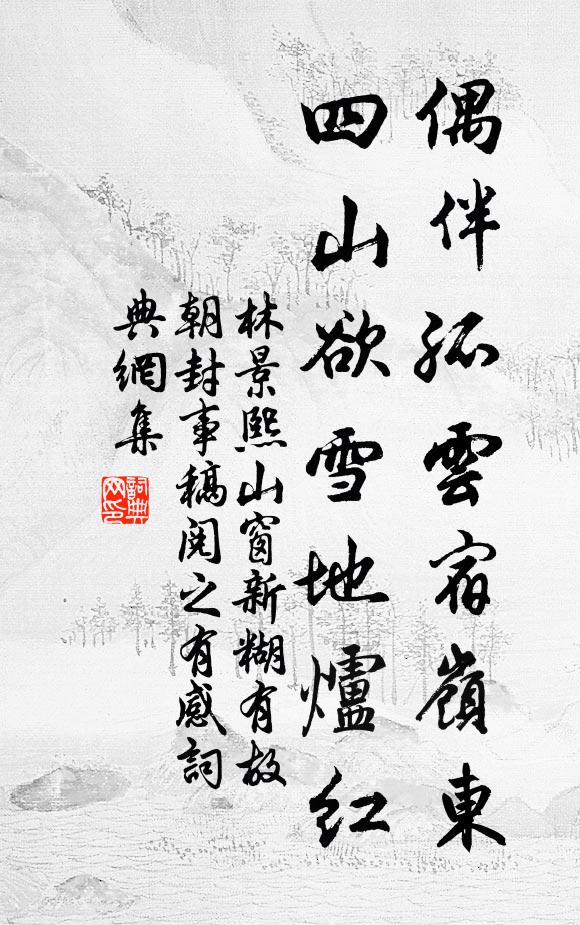 偶伴孤雲宿嶺東
四山欲雪地爐紅
林景熙山窗新糊有故
朝封事稿閱之有感詞
典網集
詞典
网印